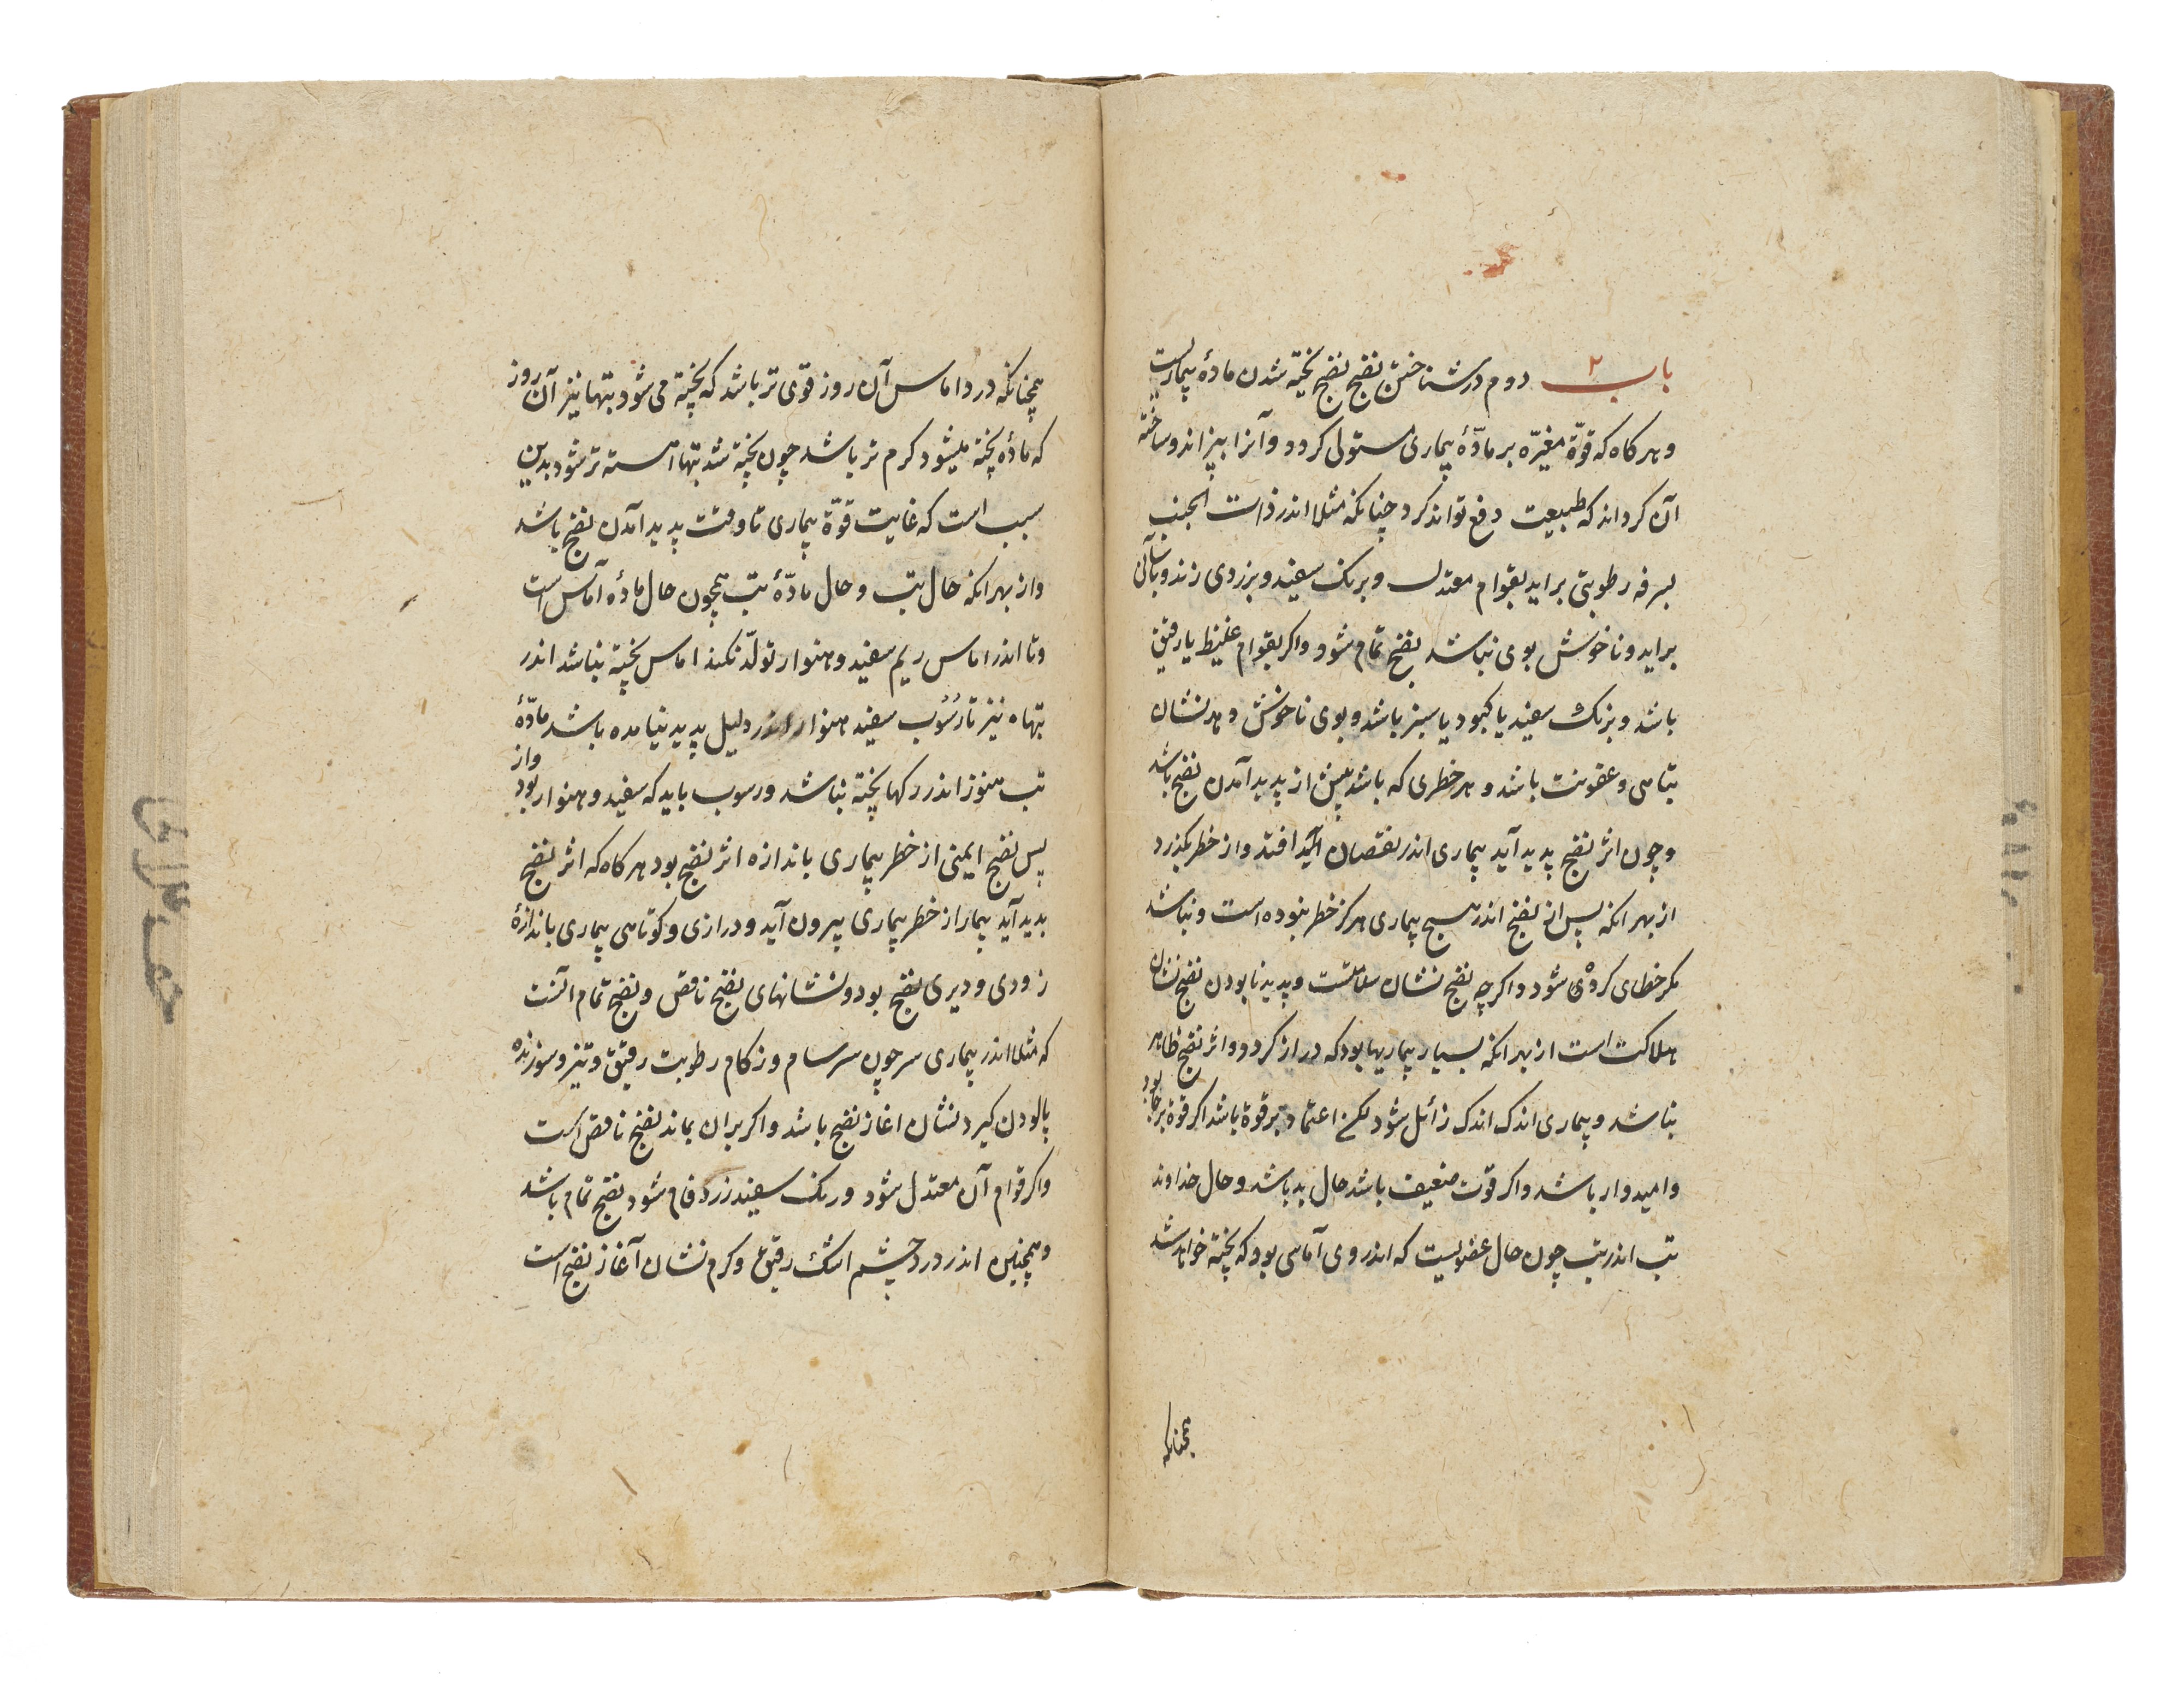 باب ۲ دوم در شناختن نضج نضج پخته شدن مادهٔ بیماریست
و هر کاه که قوّة مغیّره بر مادّهٔ بیماری مستولی کردد و آنرا بپزاند و ساخته
آن کرداند که طبیعت دفع تواند کرد چنانکه مثلا اندر ذات الجنب
بسرفه رطوبتی براید بقوام معتدل و برنک سفید و بزردی زند و بآسانی
براید و ناخوش بوی نباشد نضج تمام شود و اکر بقوام غلیظ یا رقیق
باشد و برنک سفید یا کبود یا سبز باشد و بوی ناخوش دهد نشان
تباهی و عفونت باشد و هر خطری که باشد پیش از پدید آمدن نضج باشد
و چون اثر نضج پدید آید بیماری اندر نقصان افتد و از خطر بکذرد
از بهر انکه پس از نضج اندر هیچ بیماری هرکز خطر نبوده است و نباشد
مکر خطای کرده شود و اکرچه نضج نشان سلامتست و پدید نابودن نضج نشان
هلاکت است از بهر انکه بسیار بیماریها بود که دراز کردد و اثر نضج ظاهر
نباشد و بیماری اندک اندک زائل شود لکن اعتماد بر قوة باشد اکر قوة بر جا بود
و امیدوار باشد و اکر قوت ضعیف باشد حال بد باشد و حال خداوند
تب اندر تب چون حال عضویست که اندر وی آماسی بود که پخته خواهد شد
همچنانکه
همچنانکه درد اماس آن روز قوی تر باشد که پخته می شود تبها نیز آن روز
که مادّه پخته میشود کرم تر باشد چون پخته شد تبها اهسته تر شود بدین
سبب است که غایت قوّة بیماری تا وقت پدید آمدن نضج باشد
و از بهر انکه حال تب و حال مادّهٔ تب همچون حال مادّه آماس است
و تا اندر اماس ریم سفید و هموار تولّد نکند اماس پخته نباشد اندر
تبهاء نیز تا رُسُوب سفید هموار اندر دلیل پدید نیامده باشد مادّهٔ
تب هنوز اندر رکها پخته نباشد و رسوب باید که سفید و هموار بود و از
پس نضج ایمنی از خطر بیماری باندازه اثر نضج بود هر کاه که اثر نضج
پدید آید بیمار از خطر بیماری بیرون آید و درازی و کوتاهی بیماری باندازهٔ
زودی و دیری نضج بود و نشانهای نضج ناقص و نضج تمام آنست
که مثلا اندر بیماری سر چون سرسام و زکام رطوبت رقیق و تیز و سوزنده
پالودن کیرد نشان اغاز نضج باشد و اکر بران بماند نضج ناقص است
و اکر قوام آن معتدل شود و رنک سفید زرد فام شود نضج تمام باشد
و همچنین اندر درد چشم اشک رقیق و کرم نشان آغاز نضج است